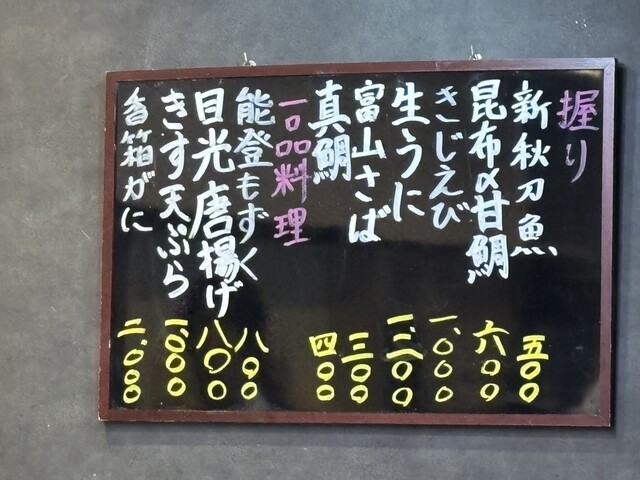 握り
新秋刀魚 五〇〇
昆布〆甘鯛 六〇〇
きじえび 一、〇〇〇
生うに 一、二〇〇
富山さば 三〇〇
真鯛 四〇〇
一品料理
能登もずく 八〇〇
目光唐揚げ 八〇〇
きす天ぷら 一、〇〇〇
香箱がに 二、〇〇〇